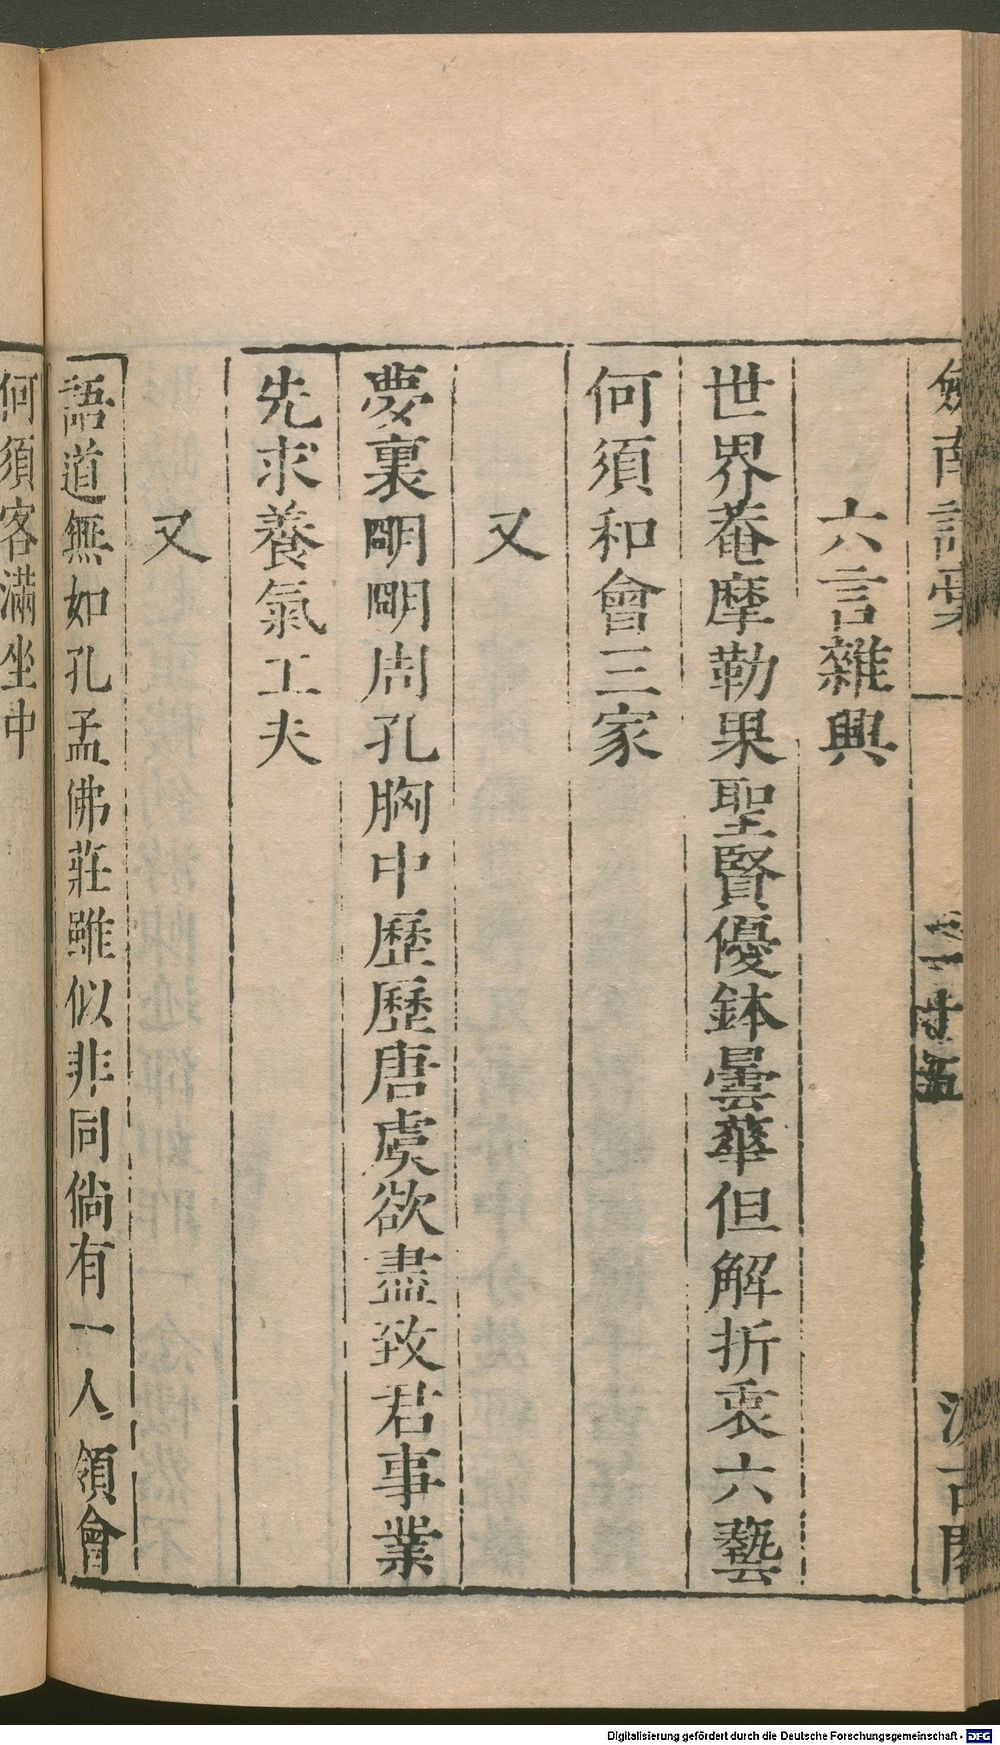 劍南詩稾
卷一
廿五
汲古閣
六言雜興
世界菴摩勒果聖賢優鉢曇華但解折衷六藝
何須和會三家
又
夢裏明明周孔胸中歷歷唐虞欲盡致君事業
先求養氣工夫
又
語道無如孔孟佛莊雖似非同倘有一人領會
何須客滿坐中
Digitalisierung gefördert durch die Deutsche Forschungsgemeinschaft - DFG